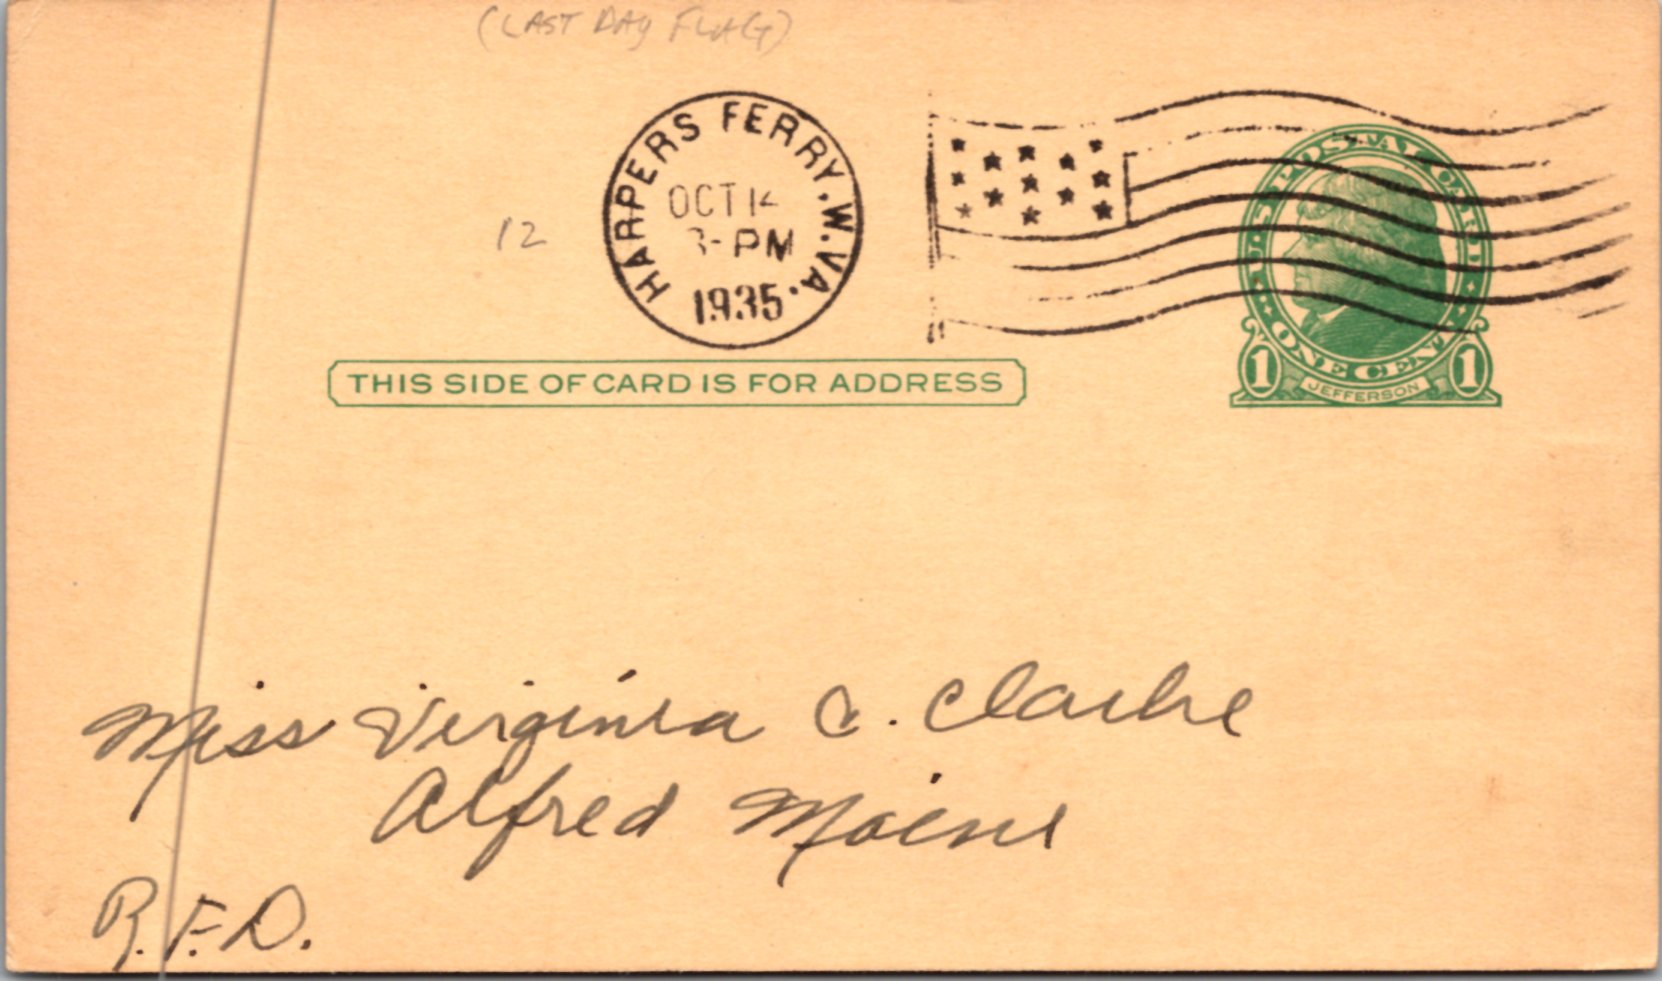 (LAST DAY FLAG)
HARPERS FERRY, W. VA.
OCT 14
3-PM
1935
12
U.S. POSTAL CARD
ONE CENT
1 JEFFERSON 1
THIS SIDE OF CARD IS FOR ADDRESS
Miss Virginia C. Clarke
Alfred Maine
R.F.D.